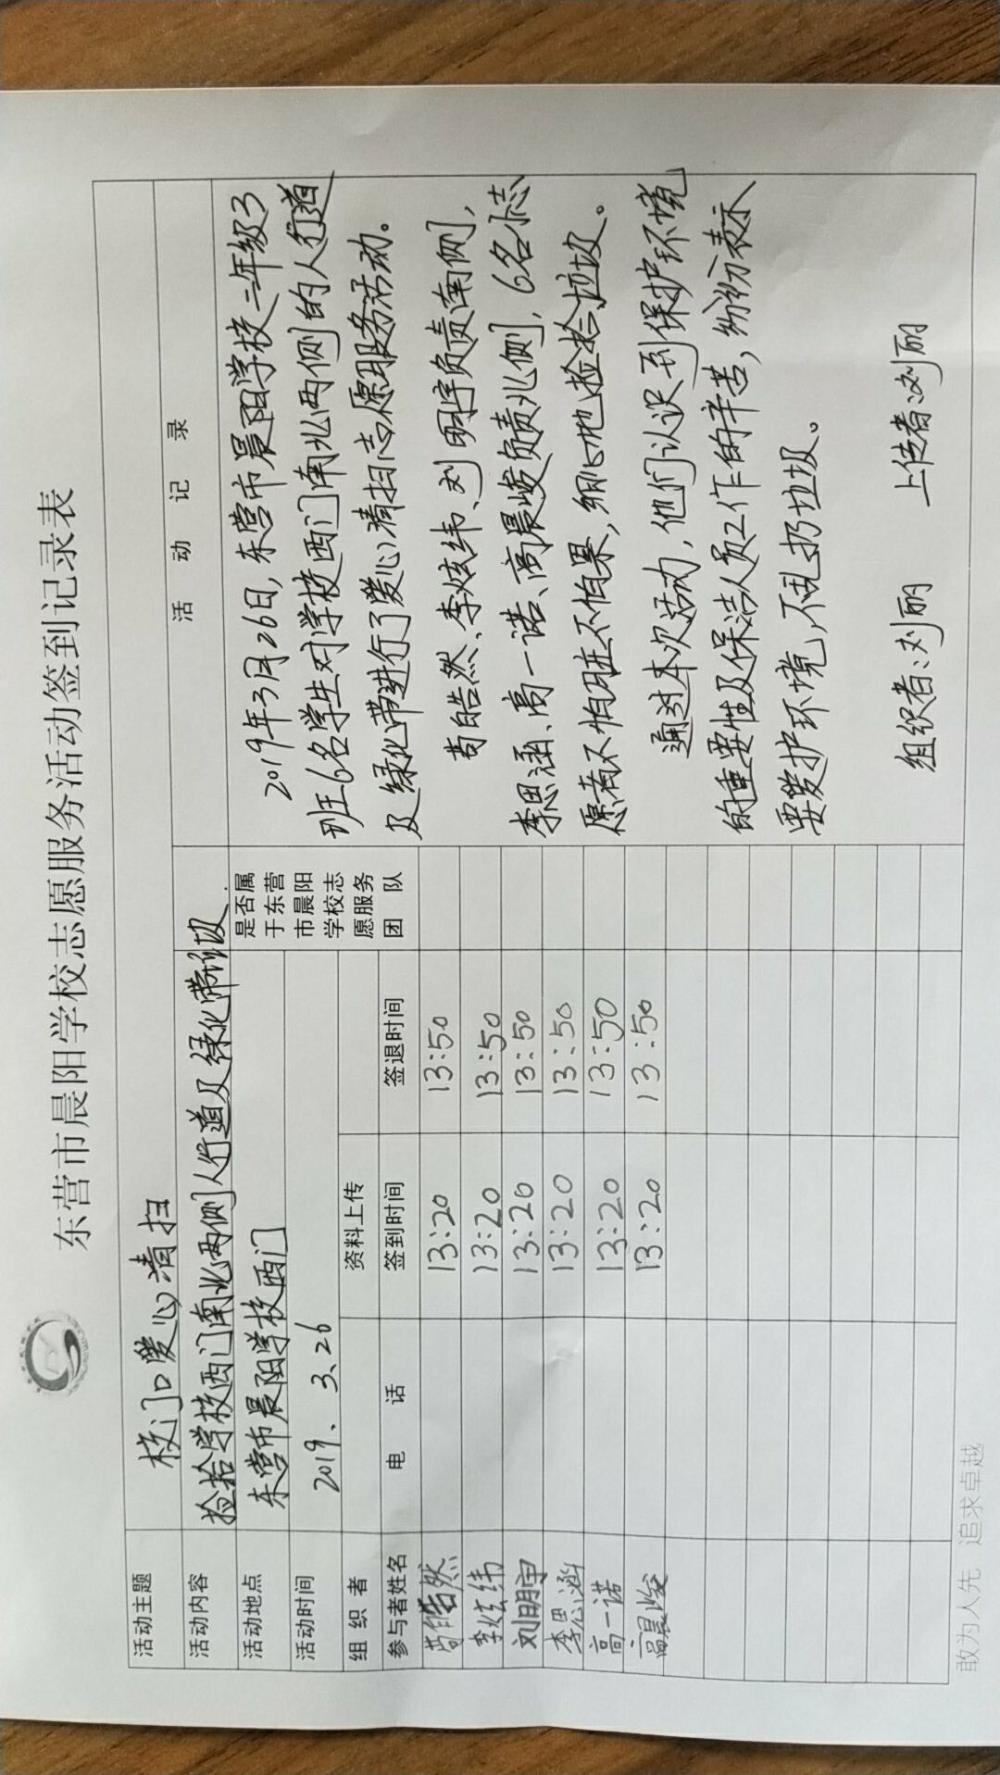 东营市晨阳学校志愿服务活动签到记录表
活动主题 校门口爱心清扫
活动内容 捡拾学校西门南北两侧人行道及绿化带垃圾.
活动地点 东营市晨阳学校西门
活动时间 2019、3、26
组织者 资料上传
参与者姓名 电话 签到时间 签退时间 是否属于东营市晨阳学校志愿服务团队
苟皓然 13:20 13:50
李炫纬 13:20 13:50
刘明宇 13:20 13:50
李思涵 13:20 13:50
高一诺 13:20 13:50
高晨峻 13:20 13:50
活动记录
2019年3月26日,东营市晨阳学校二年级3
班6名学生对学校西门南北两侧的人行道
及绿化带进行了爱心清扫志愿服务活动。
苟皓然、李炫纬、刘明宇负责南侧,
李思涵、高一诺、高晨峻负责北侧,6名小志
愿者不怕脏不怕累,细心地捡拾垃圾。
通过本次活动,他们认识到保护环境
的重要性及保洁人员工作的辛苦,纷纷表示
要爱护环境,不乱扔垃圾。
组织者:刘丽 上传者:刘丽
敢为人先 追求卓越